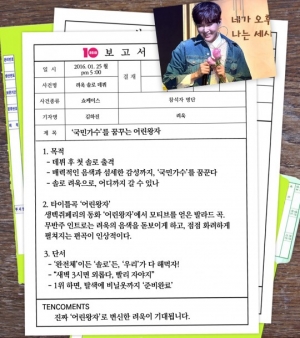 네가 오후
나는 세시
10 보고서
일 시
2016. 01. 25 월
pm 5:00
결 재
사건명
려욱 솔로 데뷔
사건종류
쇼케이스
참석자 명단
기자명
김하진
려욱
제 목
'국민가수'를 꿈꾸는 어린왕자
1. 목적
- 데뷔 후 첫 솔로 출격
- 매력적인 음색과 섬세한 감성까지, '국민가수'를 꿈꾼다
- 솔로 려욱으로, 어디까지 갈 수 있나
2. 타이틀곡 '어린왕자'
생텍쥐페리의 동화 '어린왕자'에서 모티브를 얻은 발라드 곡.
무반주 인트로는 려욱의 음색을 돋보이게 하고, 점점 화려하게
펼쳐지는 편곡이 인상적이다.
3. 단서
- '완전체'이든 '솔로'든, '우리'가 다 해먹자!
- "새벽 3시면 외롭다, 빨리 자야지"
- 1위 하면, 탈색에 비닐옷까지 '준비완료'
TENCOMENTS
진짜 '어린왕자'로 변신한 려욱이 기대됩니다.